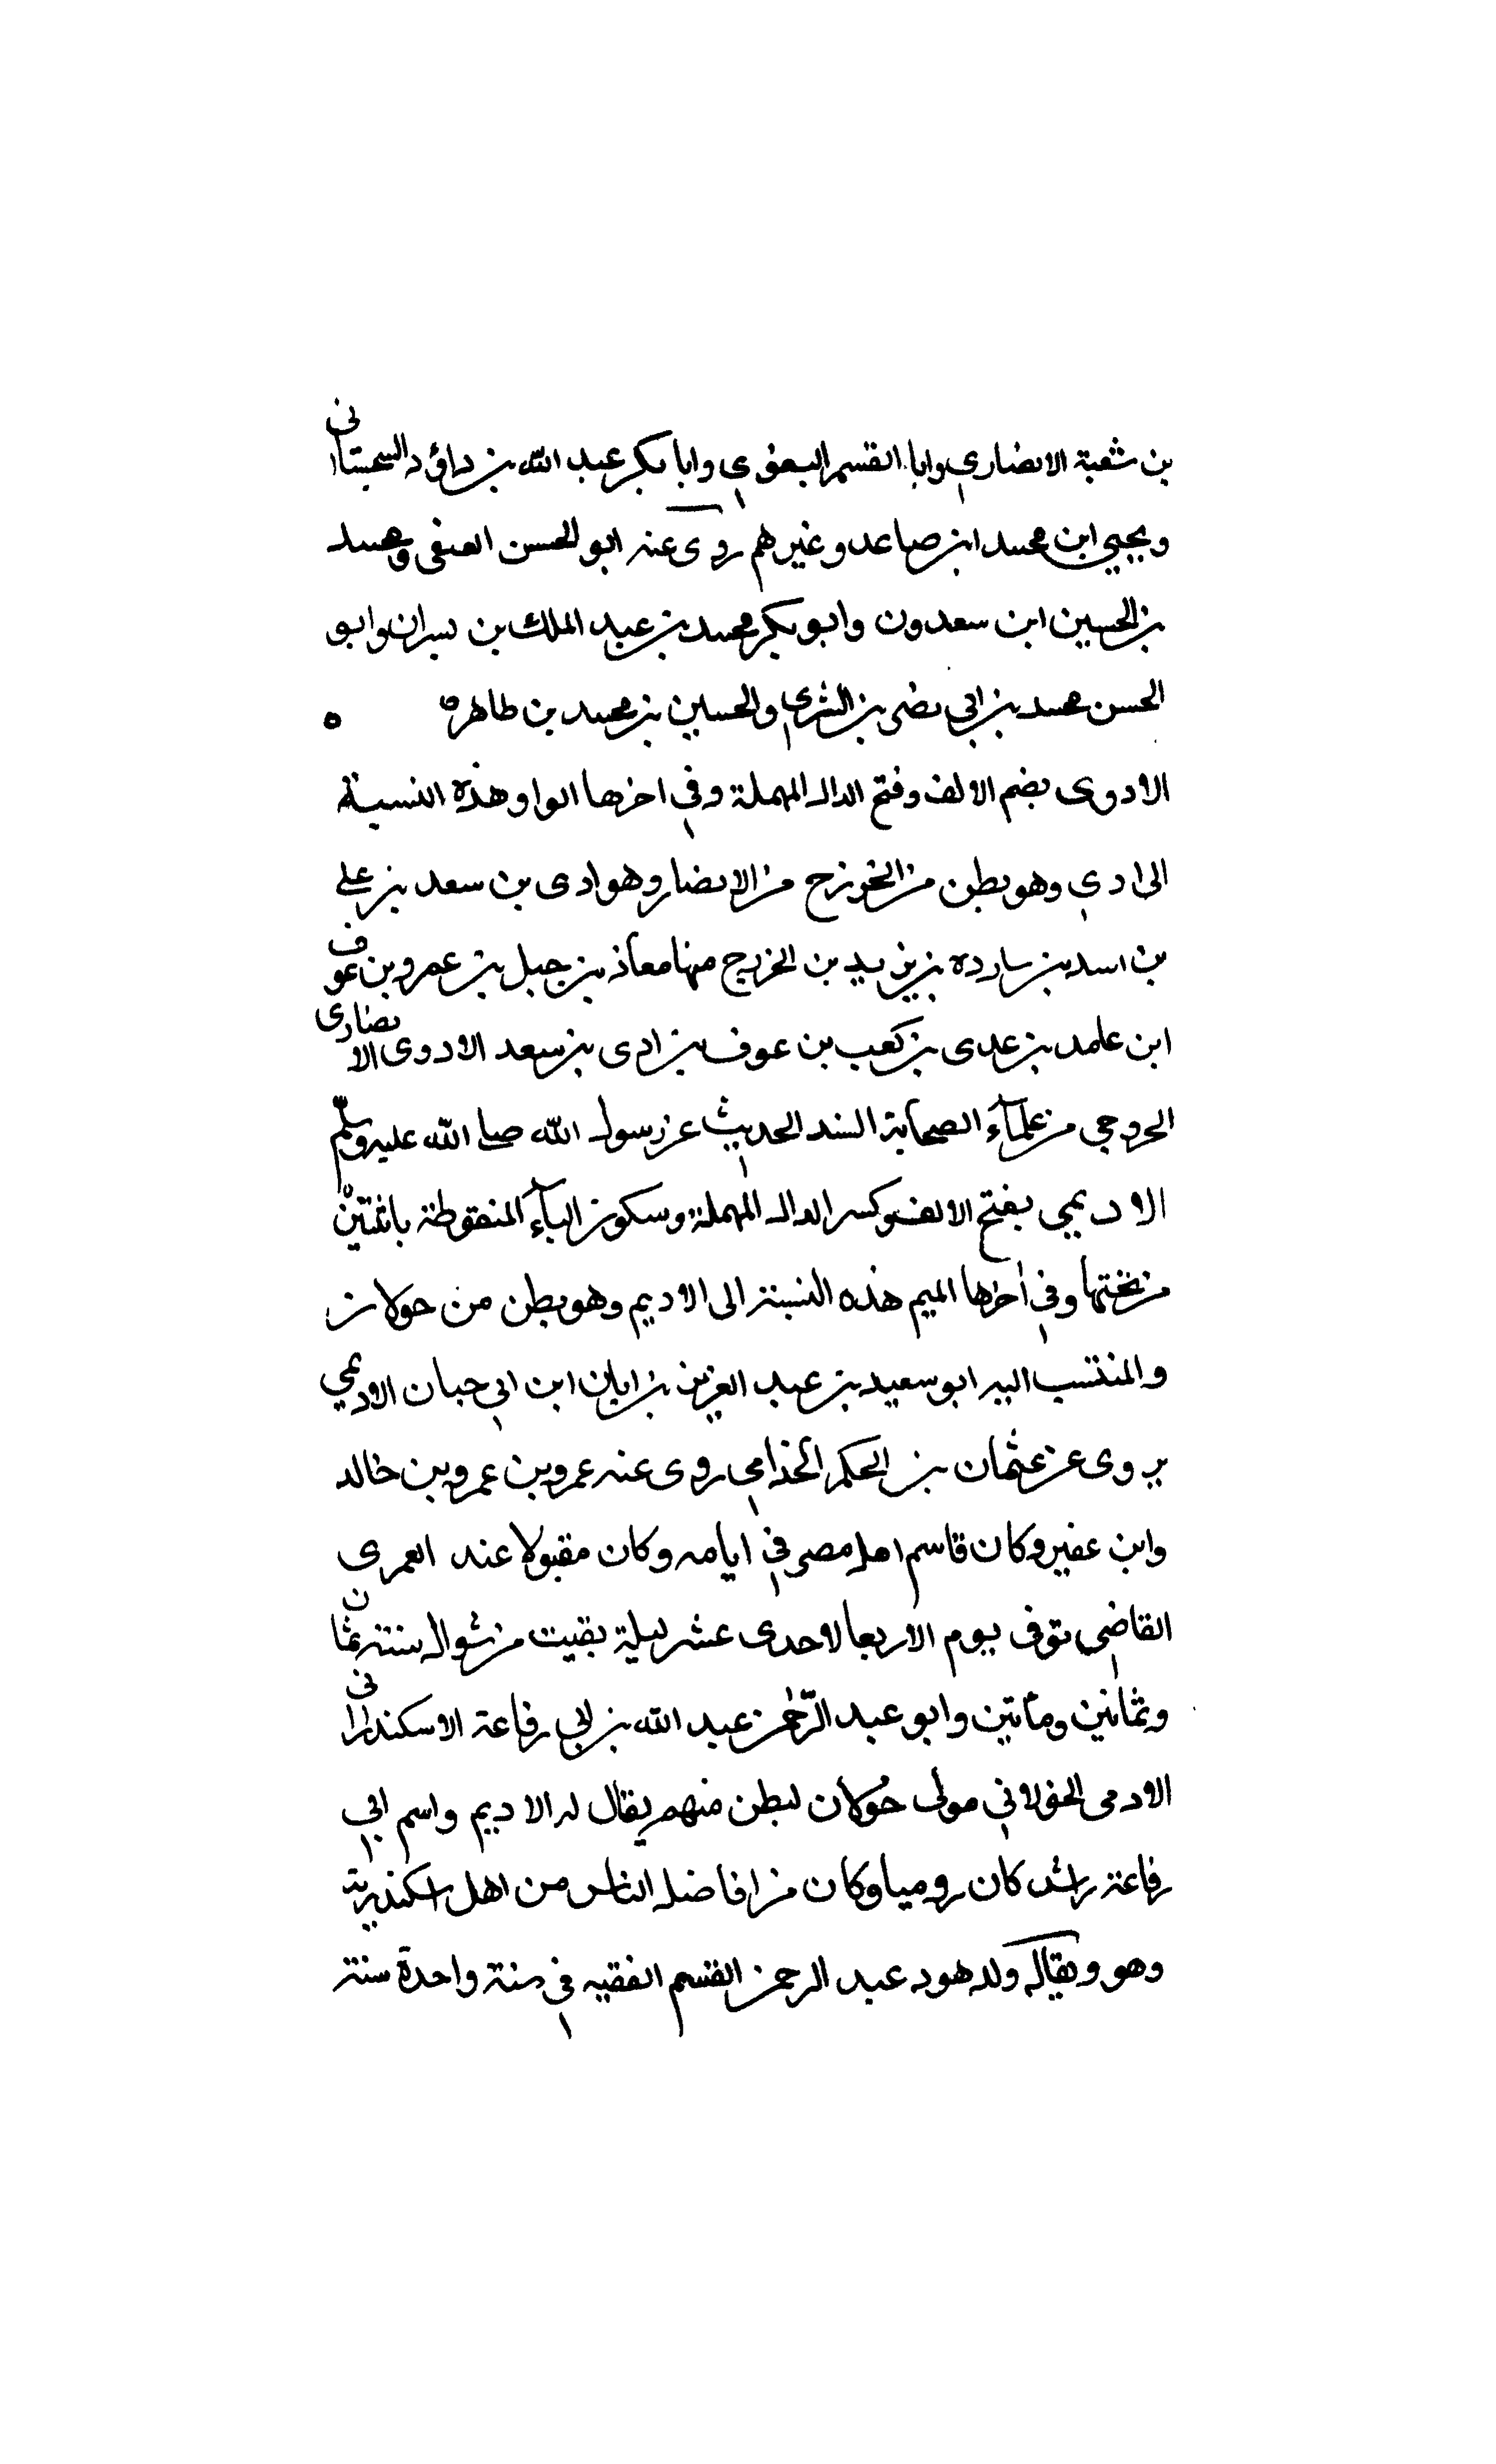 بن شعبة الانصاري وابا القسم البغوي وابا بكر عبد الله بن داؤد السجستانى
ويحيي ابن محمد ابن صاعد وغيرهم روى عنه ابو الحسن العتقى ومحمد
بن الحسين ابن سعدون وابو بكر محمد بن عبد الملك بن بسران وابو
الحسن محمد بن ابي نصر بن النرسى والحسين بن محمد بن طاهر ه ه
الادوى بضم الالف وفتح الدال المهملة وفي اخرها الواو هذه النسبة
الى ادي وهو بطن من الخزرج من الانصار وهو ادى بن سعد بن على
بن اسد بن سارده بن يزيد بن الخزرج منها معاذ بن جبل بن عمرو بن عوف
ابن عامد بن عدى بن كعب بن عوف بن ادى بن سعد الادوى الانصارى
الخزرجي من علمآء الصحابة السند الحديث عن رسول الله صلى الله عليه وسلم
الاديمي بفتح الالف وكسر الدال المهملة وسكون اليآء المنقوطة باثنتين
من تحتها وفي اخرها الميم هذه النسبة الى الاديم وهو بطن من خولان
والمنتسب اليه ابو سعيد بن عبد العزيز بن ابان ابن ابي حبان الاديمي
يروى عن عثمان بن الحكم الجذامي روى عنه عمرو بن عمرو بن خالد
وابن عفير وكان قاسم اهل مصر في ايامه وكان مقبولا عند العمرى
القاضى توفى يوم الاربعا لاحدى عشر ليلة بقيت من شوال سنة ثمان
وثمانين ومائتين وابو عبد الرحمن عبد الله بن ابي رفاعة الاسكندرانى
الادمى الخولاني مولى خولان لبطن منهم يقال له الاديم واسم ابي
رفاعة راشد كان روميا وكان من افاضل الناس من اهل اسكندرية
وهو ويقال ولد هو د عبد الرحمن القسم الفقيه في سنة واحدة سنة